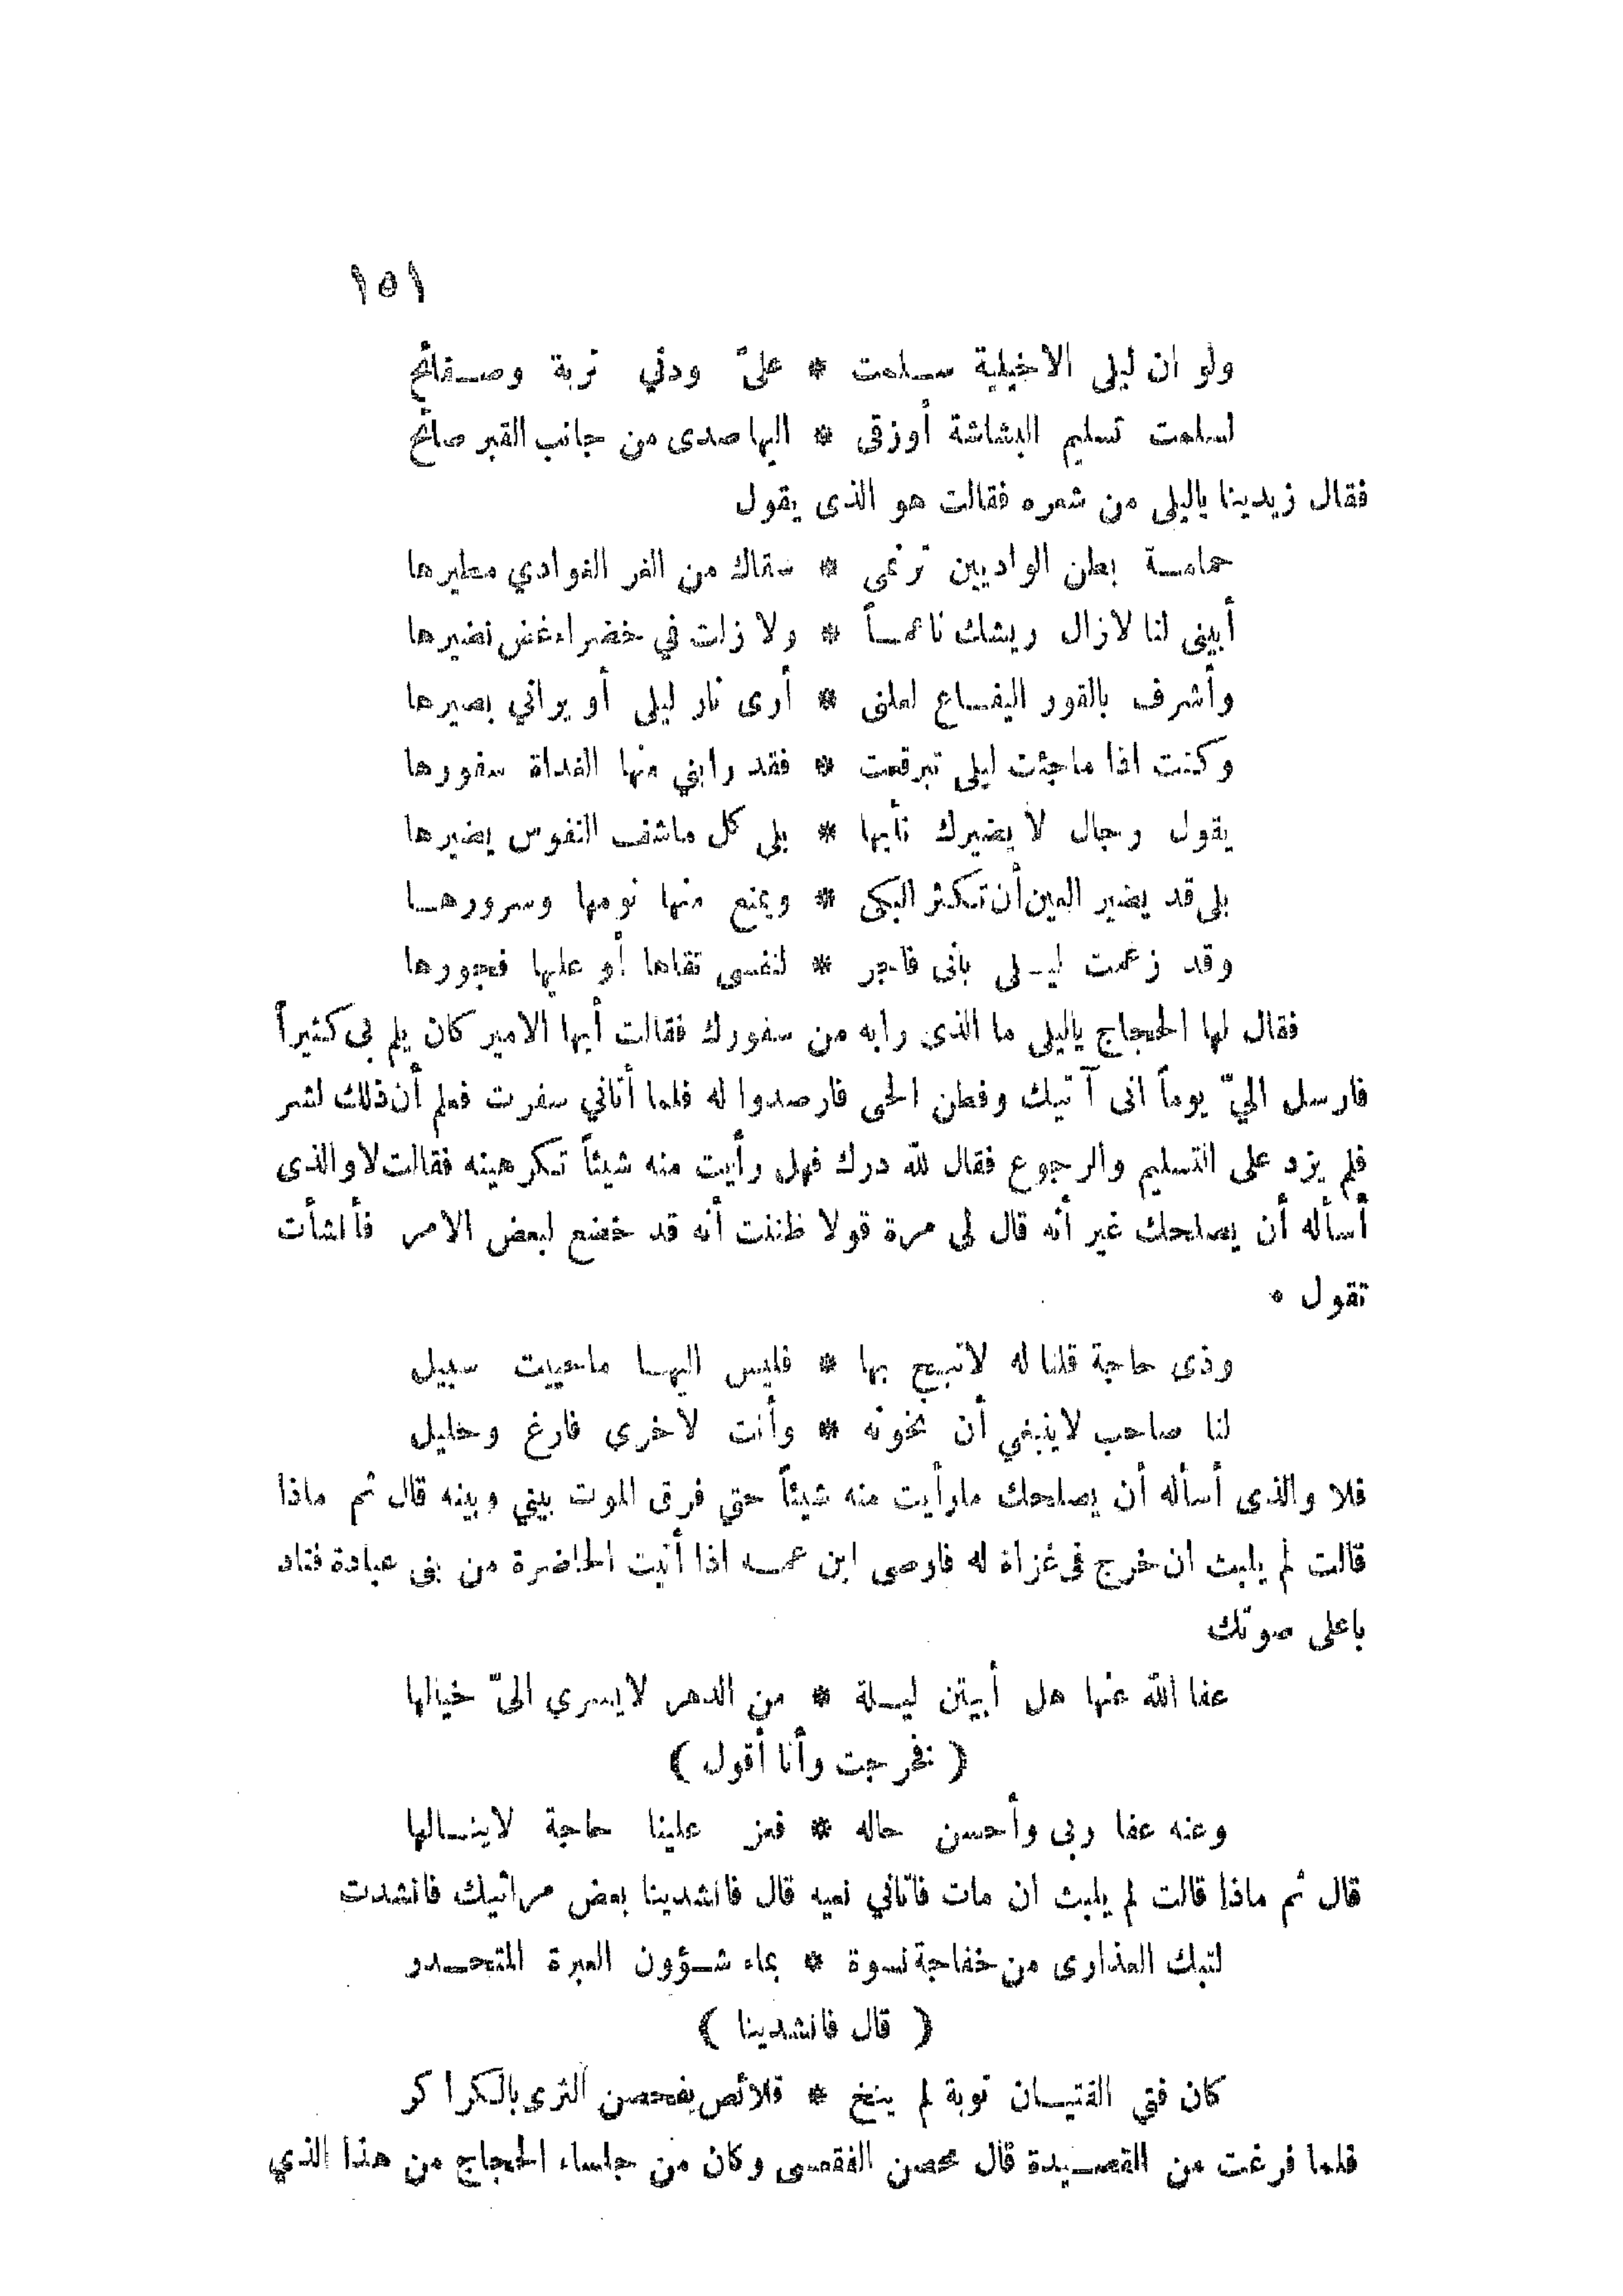 ١٥١
ولو ان ليلى الاخيلية سلمت * علىّ ودني تربة وصفائح
لسلمت تسليم البشاشة أوزقى * اليها صدى من جانب القبر صائح
فقال زيدينا ياليلى من شعره فقالت هو الذى يقول
حمامة بطن الواديين ترنمى * سقاك من الغر الغوادي مطيرها
أبينى لنا لازال ريشك ناعماً * ولا زلت في خضراء غض نضيرها
وأشرف بالقور اليفاع لعلنى * أرى نار ليلى أو يراني بصيرها
وكنت اذا ماجئت ليلى تبرقعت * فقد رابني منها الغداة سفورها
يقول رجال لايضيرك نأيها * بلى كل ماشف النفوس يضيرها
بلى قد يضير العين أن تكثر البكى * ويمنع منها نومها وسرورها
وقد زعمت ليلى بانى فاجر * لنفسى تقاها أو عليها فجورها
فقال لها الحجاج ياليلى ما الذى رابه من سفورك فقالت أيها الامير كان يلم بى كثيراً
فارسل اليّ يوماً انى آتيك وفطن الحى فارصدوا له فلما أتاني سفرت فعلم أن ذلك لشر
فلم يزد على التسليم والرجوع فقال لله درك فهل رأيت منه شيئاً تكرهينه فقالت لاوالذى
أسأله أن يصلحك غير أنه قال لى مرة قولا ظننت أنه قد خضع لبعض الامر فأنشأت
تقول •
وذى حاجة قلنا له لاتبح بها * فليس اليها ماحييت سبيل
لنا صاحب لاينبغي أن نخونه * وأنت لاخرى فارغ وخليل
فلا والذى أسأله أن يصلحك مارأيت منه شيئاً حتي فرق الموت بيني وبينه قال ثم ماذا
قالت لم يلبث ان خرج فى غزاة له فاوصى ابن عمه اذا أتيت الحاضرة من بنى عبادة فناد
باعلى صوتك
عفا الله عنها هل أبيتن ليلة * من الدهر لايسري الىّ خيالها
( فخرجت وأنا أقول )
وعنه عفا ربى وأحسن حاله * فعز علينا حاجة لاينالها
قال ثم ماذا قالت لم يلبث ان مات فاتاني نعيه قال فانشدينا بعض مراثيك فانشدت
لتبك العذارى من خفاجة نسوة * بماء شؤون العبرة المتحدر
( قال فانشدينا )
كان فتي الفتيان توبة لم ينخ * قلائص يفحصن الثرى بالكراكر
فلما فرغت من القصيدة قال محصن الفقعسى وكان من جلساء الحجاج من هذا الذي